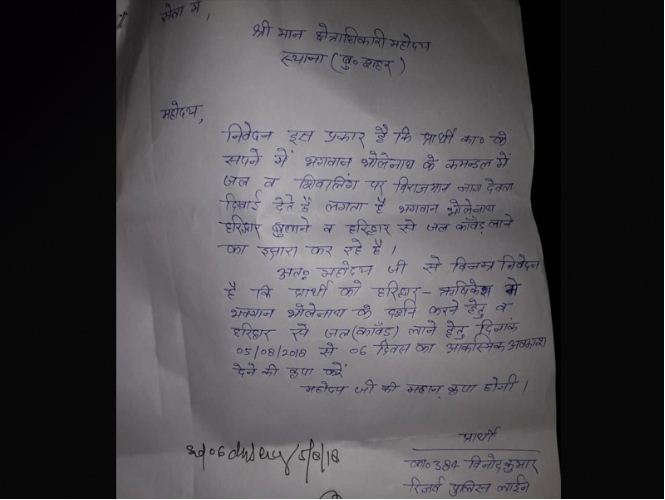 सेवा में,
श्री मान क्षेत्राधिकारी महोदय
स्याना (बु० शहर)
महोदय,
निवेदन इस प्रकार है कि प्रार्थी का० के
सपने में भगवान भोलेनाथ के कमन्डल में
जल व शिवलिंग पर विराजमान नाग देवता
दिखाई देते है लगता है भगवान भोलेनाथ
हरिद्वार बुलाने व हरिद्वार से जल काँवड़ लाने
का इशारा कर रहे है।
अतः महोदय जी से विनम्र निवेदन
है कि प्रार्थी को हरिद्वार - ऋषिकेश में
भगवान भोलेनाथ के दर्शन करने हेतु व
हरिद्वार से जल (काँवड़) लाने हेतु दिनांक
05/08/2018 से 06 दिवस का आकस्मिक अवकाश
देने की कृपा करें
महोदय जी की महान कृपा होगी।
प्रार्थी
का० 384 विनोद कुमार
रिजर्व पुलिस लाईन
06 5/8/18